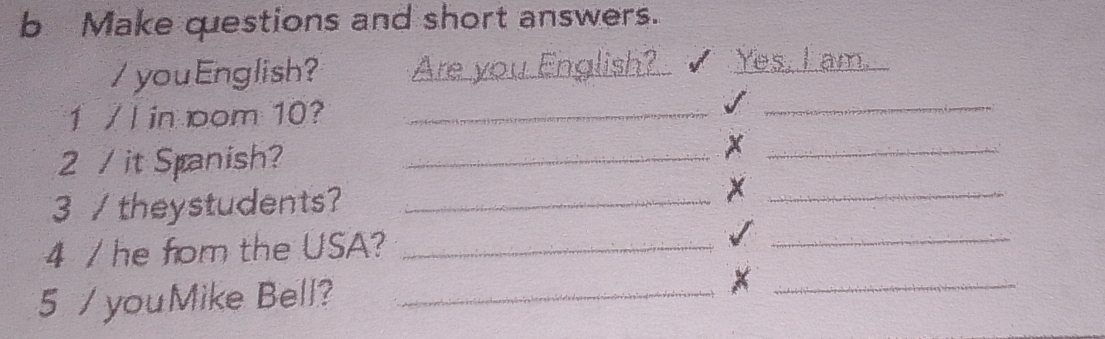 b Make questions and short answers.
/ you English? Are you English? ✓ Yes, I am.
1 / I in room 10? ✓
2 / it Spanish? ✗
3 / they students? ✗
4 / he from the USA? ✓
5 / you Mike Bell? ✗